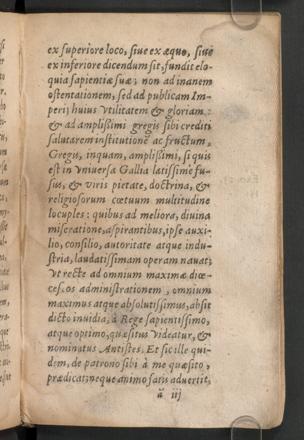 ex superiore loco, siue ex æquo, siue
ex inferiore dicendum sit, fundit elo-
quia sapientiæ suæ; non ad inanem
ostentationem, sed ad publicam Im-
perij huius vtilitatem & gloriam
& ad amplissimi gregis sibi crediti
salutarem institutionē ac fructum,
Gregis, inquam, amplissimi, si quis
est in vniuersa Gallia latissime fu-
sus, & viris pietate, doctrina, &
religiosorum cœtuum multitudine
locuples: quibus ad meliora, diuina
miseratione, aspirantibus, ipse auxi-
lio, consilio, autoritate atque indu-
stria, laudatissimam operam nauat;
Vt recte ad omnium maximæ diœ-
ces.os administrationem, omnium
maximus atque absolutissimus, absit
dicto inuidia, à Rege sapientissimo,
atque optimo, quæsitus videatur, &
nominatus Antistes. Et sic ille qui-
dem, de patrono sibi à me quæsito,
prædicat; neque animo satis aduertit,
ā iij